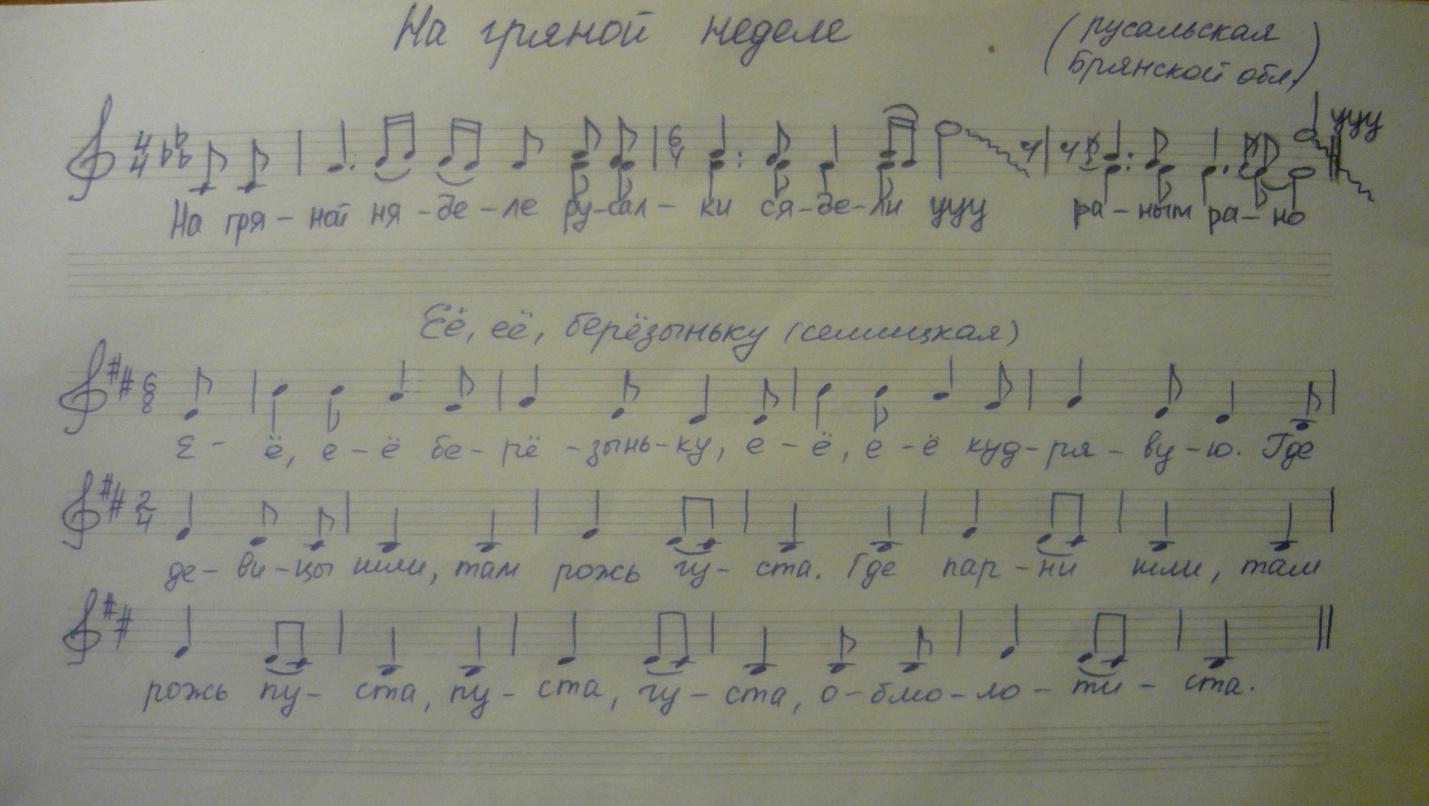 На гряной неделе
(русальская
Брянской обл.)
ууу
На гря - ной ня - де - ле ру-сал - ки ся-де-ли ууу ра - ным ра - но
Её, её, берёзыньку (семицкая)
Е - ё, е - ё бе - рё - зынь-ку, е - ё, е - ё куд - ря - ву - ю. Где
де - ви - цы шли, там рожь гу - ста. Где пар - ни шли, там
рожь пу - ста, пу - ста, гу - ста, о - бмо - ло - ти - ста.